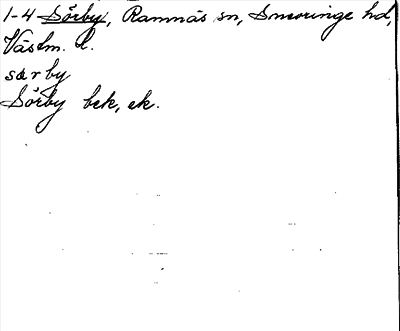 1-4 Sörby, Ramnäs sn, Snevringe hd,
Västm. l.
særby
Sörby bek, ek.